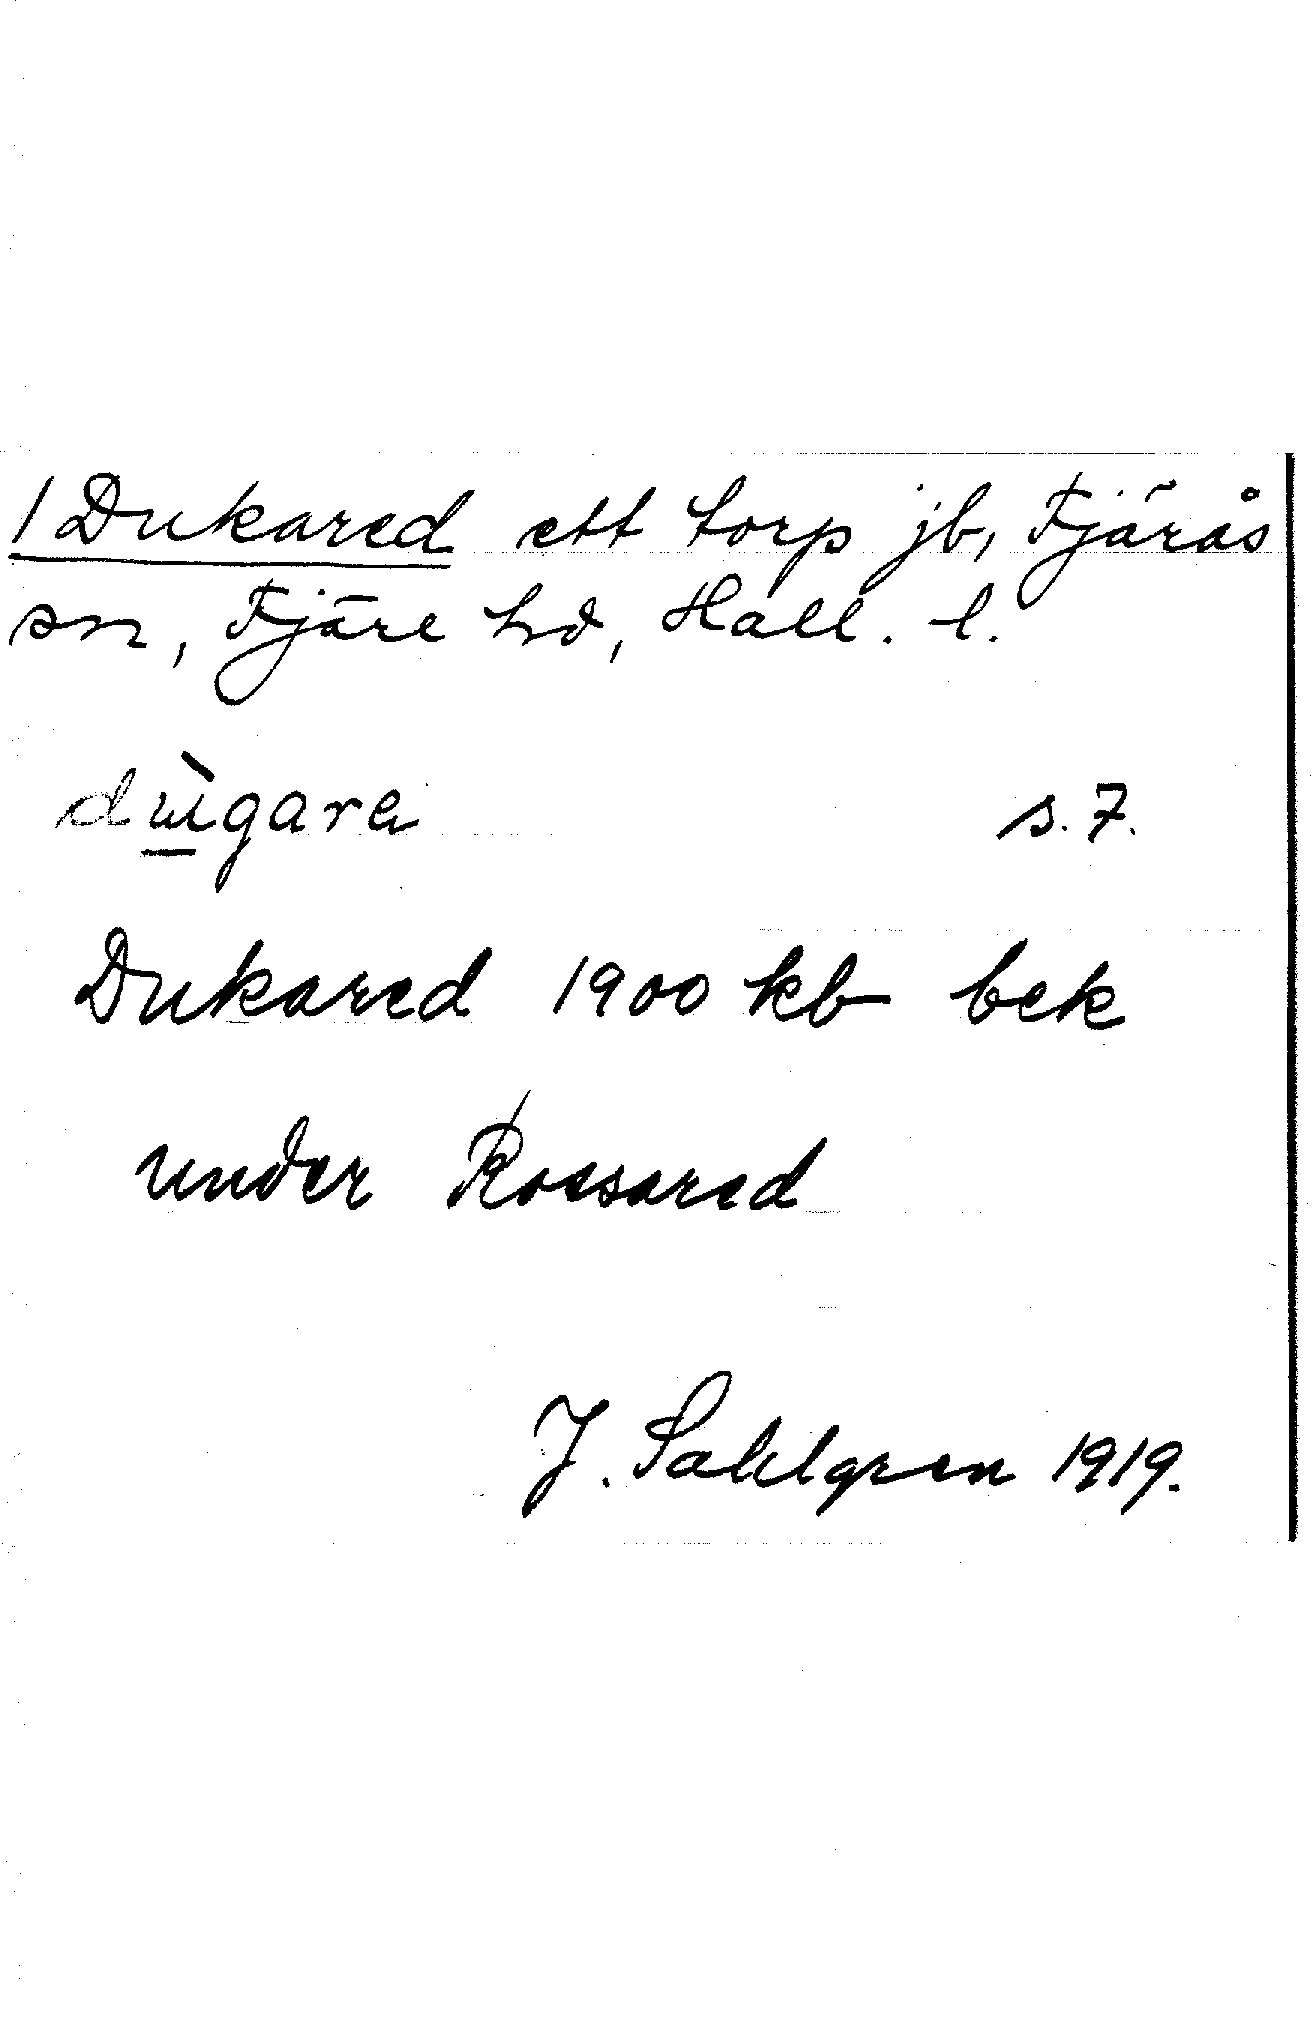 / Dukared ett torp jb, Fjärås
sn, Fjäre hd, Hall. l.
dɯ̀gara s. 7.
Dukared 1900 kb bek
under Rossared
J. Sahlgren 1919.